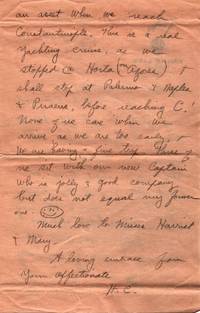 an asset when we reach
Constantinople. This is a real
Yachting cruise, as we
stopped @ Horta (Azores) &
shall stop at Palermo & Naples
& Piraeus, before reaching C!
None of us care when we
arrive as we are too early, &
We are having a fine trip. Three of
us sit with our new Captain
who is jolly & good company
but does not equal my former
one.
Much love to Misses Harriet
& Mary.
A loving embrace from
Your affectionate
H. C.